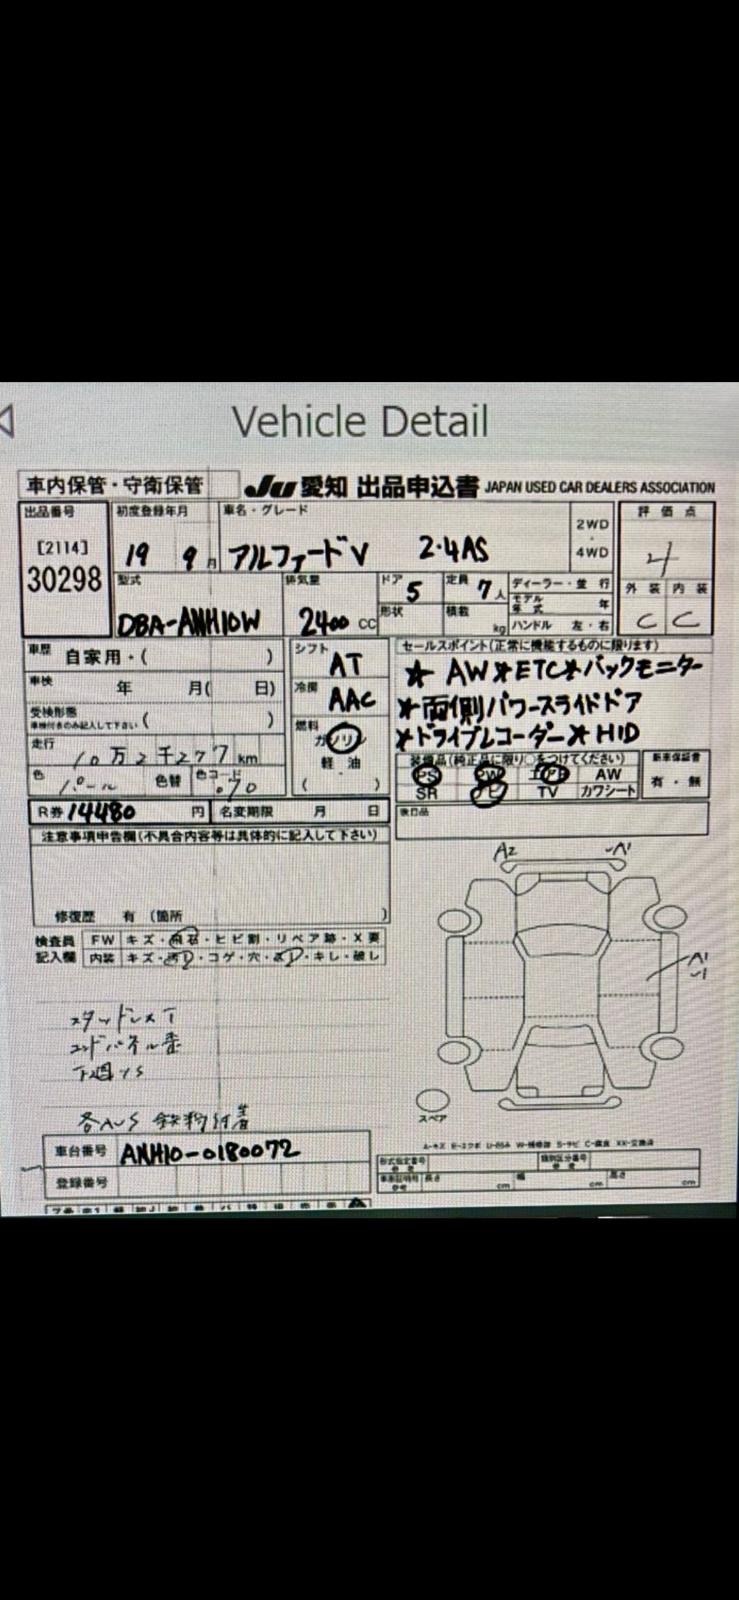 Vehicle Detail
車内保管・守衛保管
Ju 愛知 出品申込書 JAPAN USED CAR DEALERS ASSOCIATION
出品番号
[2114]
30298
初度登録年月
19 9 月
車名・グレード
アルファードV 2.4AS
2WD
・
4WD
評価点
4
型式
DBA-ANH10W
排気量
2400 CC
ドア 5
定員 7人
形状
積載 kg
ディーラー・並行
モデル年式 年
ハンドル 左・右
外装 内装
C C
車歴 自家用・( )
車検 年 月( 日)
受検形態
車検付きのみ記入して下さい ( )
走行
10万2千277 km
色 パール
色替
色コード 070
シフト
AT
冷房
AAC
燃料
ガソリン
軽油
( )
セールスポイント(正常に機能するものに限ります)
★ AW★ETC★バックモニター
★両側パワースライドドア
★ドライブレコーダー★HID
装備品(純正品に限り○をつけてください)
PS PW エアB AW
SR ナビ TV カワシート
新車保証書
有・無
R券 14480 円
名変期限 月 日
後日品
注意事項申告欄(不具合内容等は具体的に記入して下さい)
修復歴 有 (箇所 )
検査員
記入欄
FW キズ・飛石・ヒビ割・リペア跡・X要
内装 キズ・汚レ・コゲ・穴・ヌレ・キレ・破レ
スタッドレスT
下廻りS
鉄粉付着
A2
A1
A1
スペア
A-キズ E-エクボ U-凹み W-補修跡 S-サビ C-腐食 XX-交換済
車台番号 ANH10-0180072
登録番号
形式指定番号
類別区分番号
参考
長さ cm 幅 cm 高さ cm